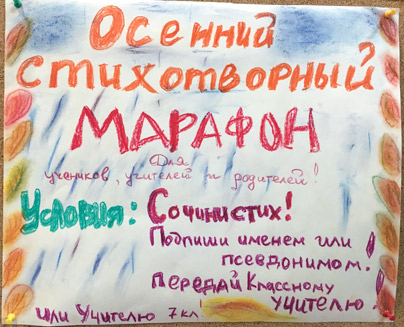 Осенний
стихотворный
МАРАФОН
Для
учеников, учителей и родителей!
Условия: Сочини стих!
Подпиши именем или
псевдонимом!
Передай Классному
учителю!
или Учителю 7 кл!